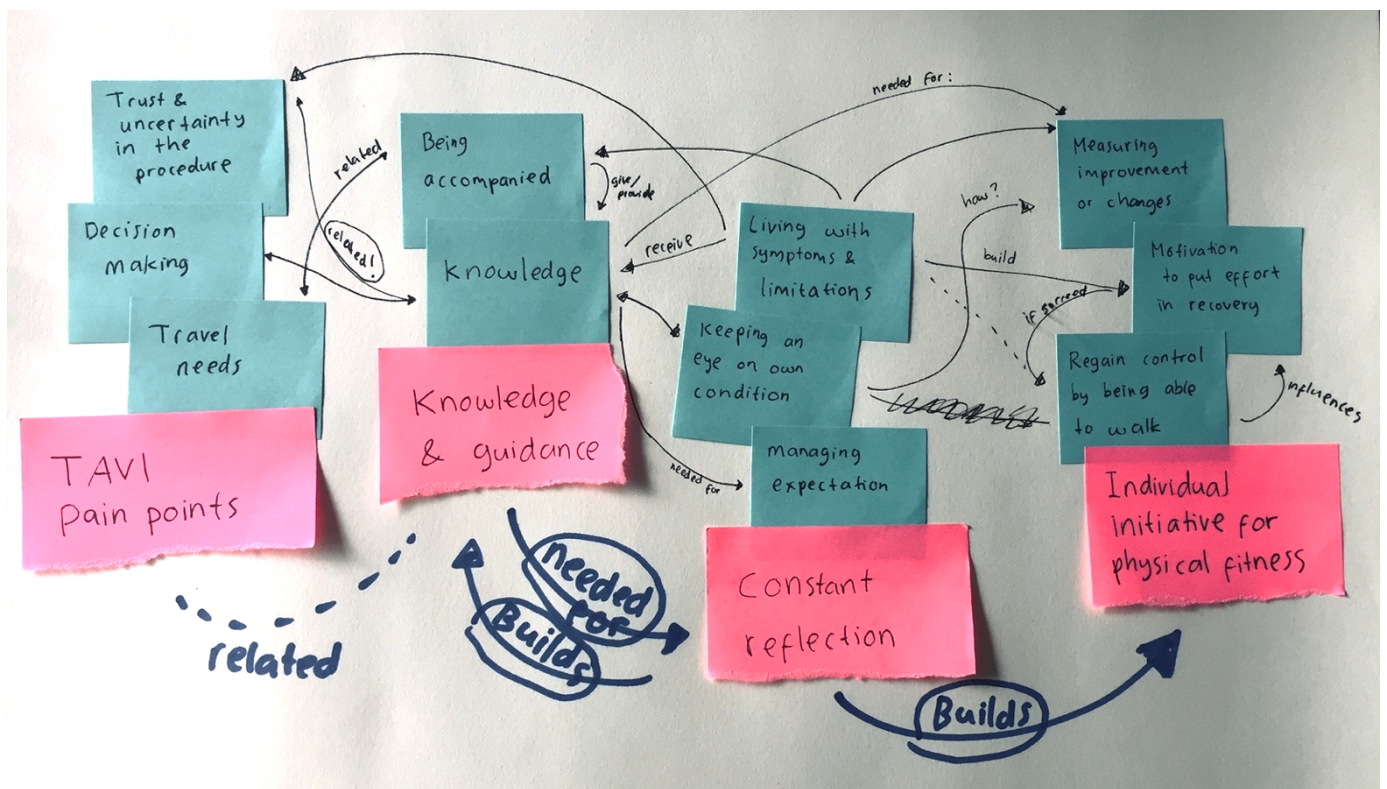 Trust &
uncertainty
in the
procedure
Decision
making
Travel
needs
TAVI
Pain points
related
related!
Being
accompanied
give/
provide
Knowledge
Knowledge
& guidance
receive
needed for:
Living with
symptoms &
limitations
Keeping an
eye on own
condition
managing
expectation
needed for
Constant
reflection
how?
build
if succeed
Measuring
improvement
or changes
Motivation
to put effort
in recovery
Regain control
by being able
to walk
influences
Individual
initiative for
physical fitness
related
needed
for
Builds
Builds